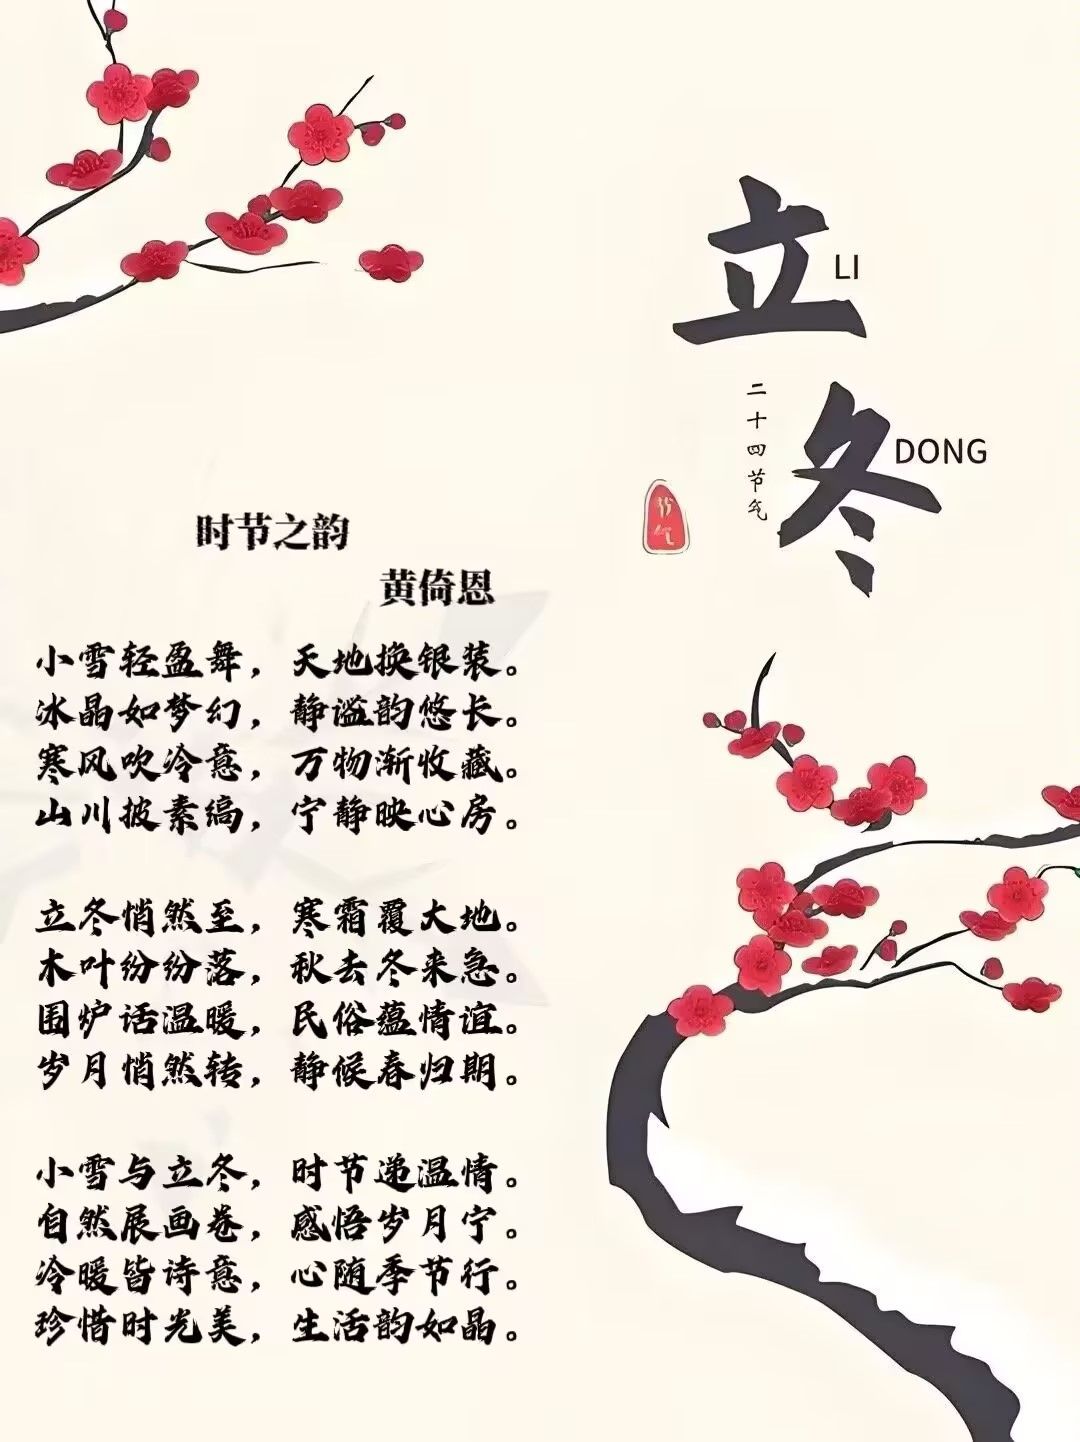 立
LI
冬
DONG
二十四节气
节气
时节之韵
黄倚恩
小雪轻盈舞，天地换银装。
冰晶如梦幻，静谧韵悠长。
寒风吹冷意，万物渐收藏。
山川披素缟，宁静映心房。
立冬悄然至，寒霜覆大地。
木叶纷纷落，秋去冬来急。
围炉话温暖，民俗蕴情谊。
岁月悄然转，静候春归期。
小雪与立冬，时节递温情。
自然展画卷，感悟岁月宁。
冷暖皆诗意，心随季节行。
珍惜时光美，生活韵如晶。